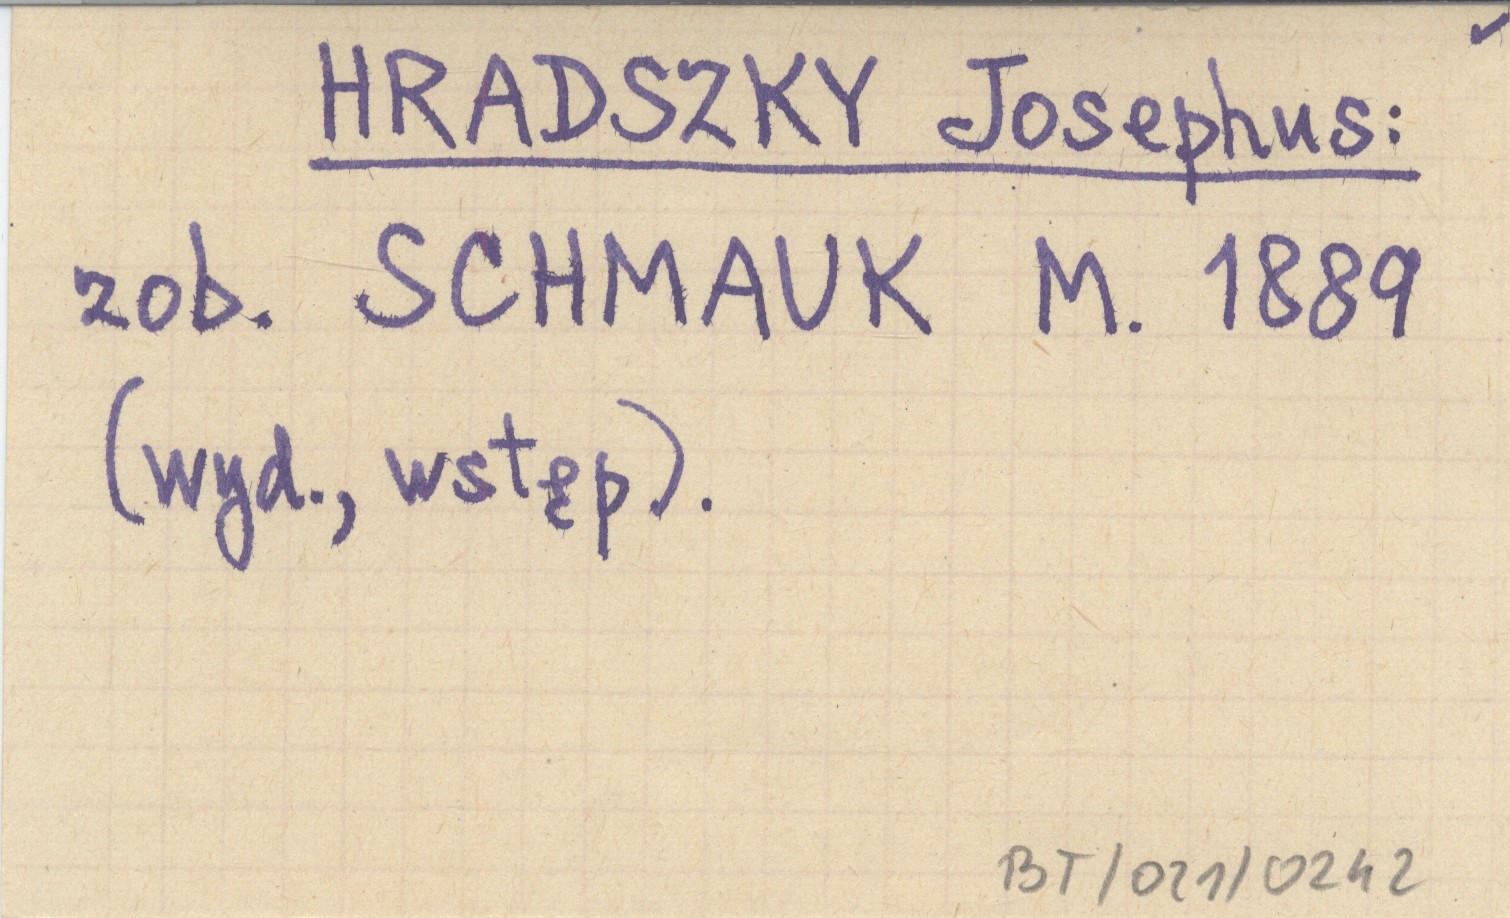 HRADSZKY Josephus:
zob. SCHMAUK M. 1889
(wyd., wstęp).
BT/021/0242